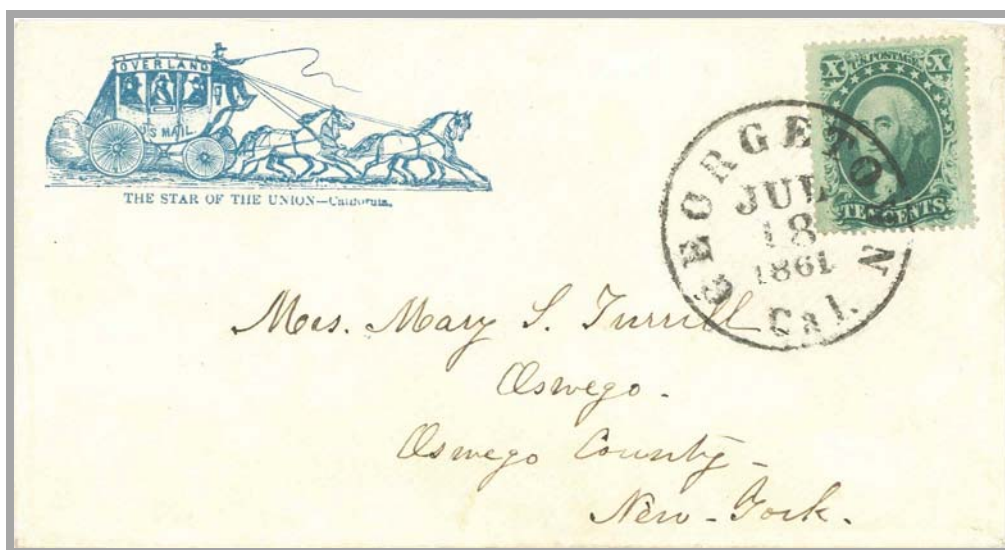 OVERLAND
U.S MAIL.
THE STAR OF THE UNION—California.
U.S. POSTAGE
X X
TEN CENTS.
GEORGETOWN
JUL
18
1861
Cal.
Mrs. Mary S. Turrill
Oswego.
Oswego County-
New-York.